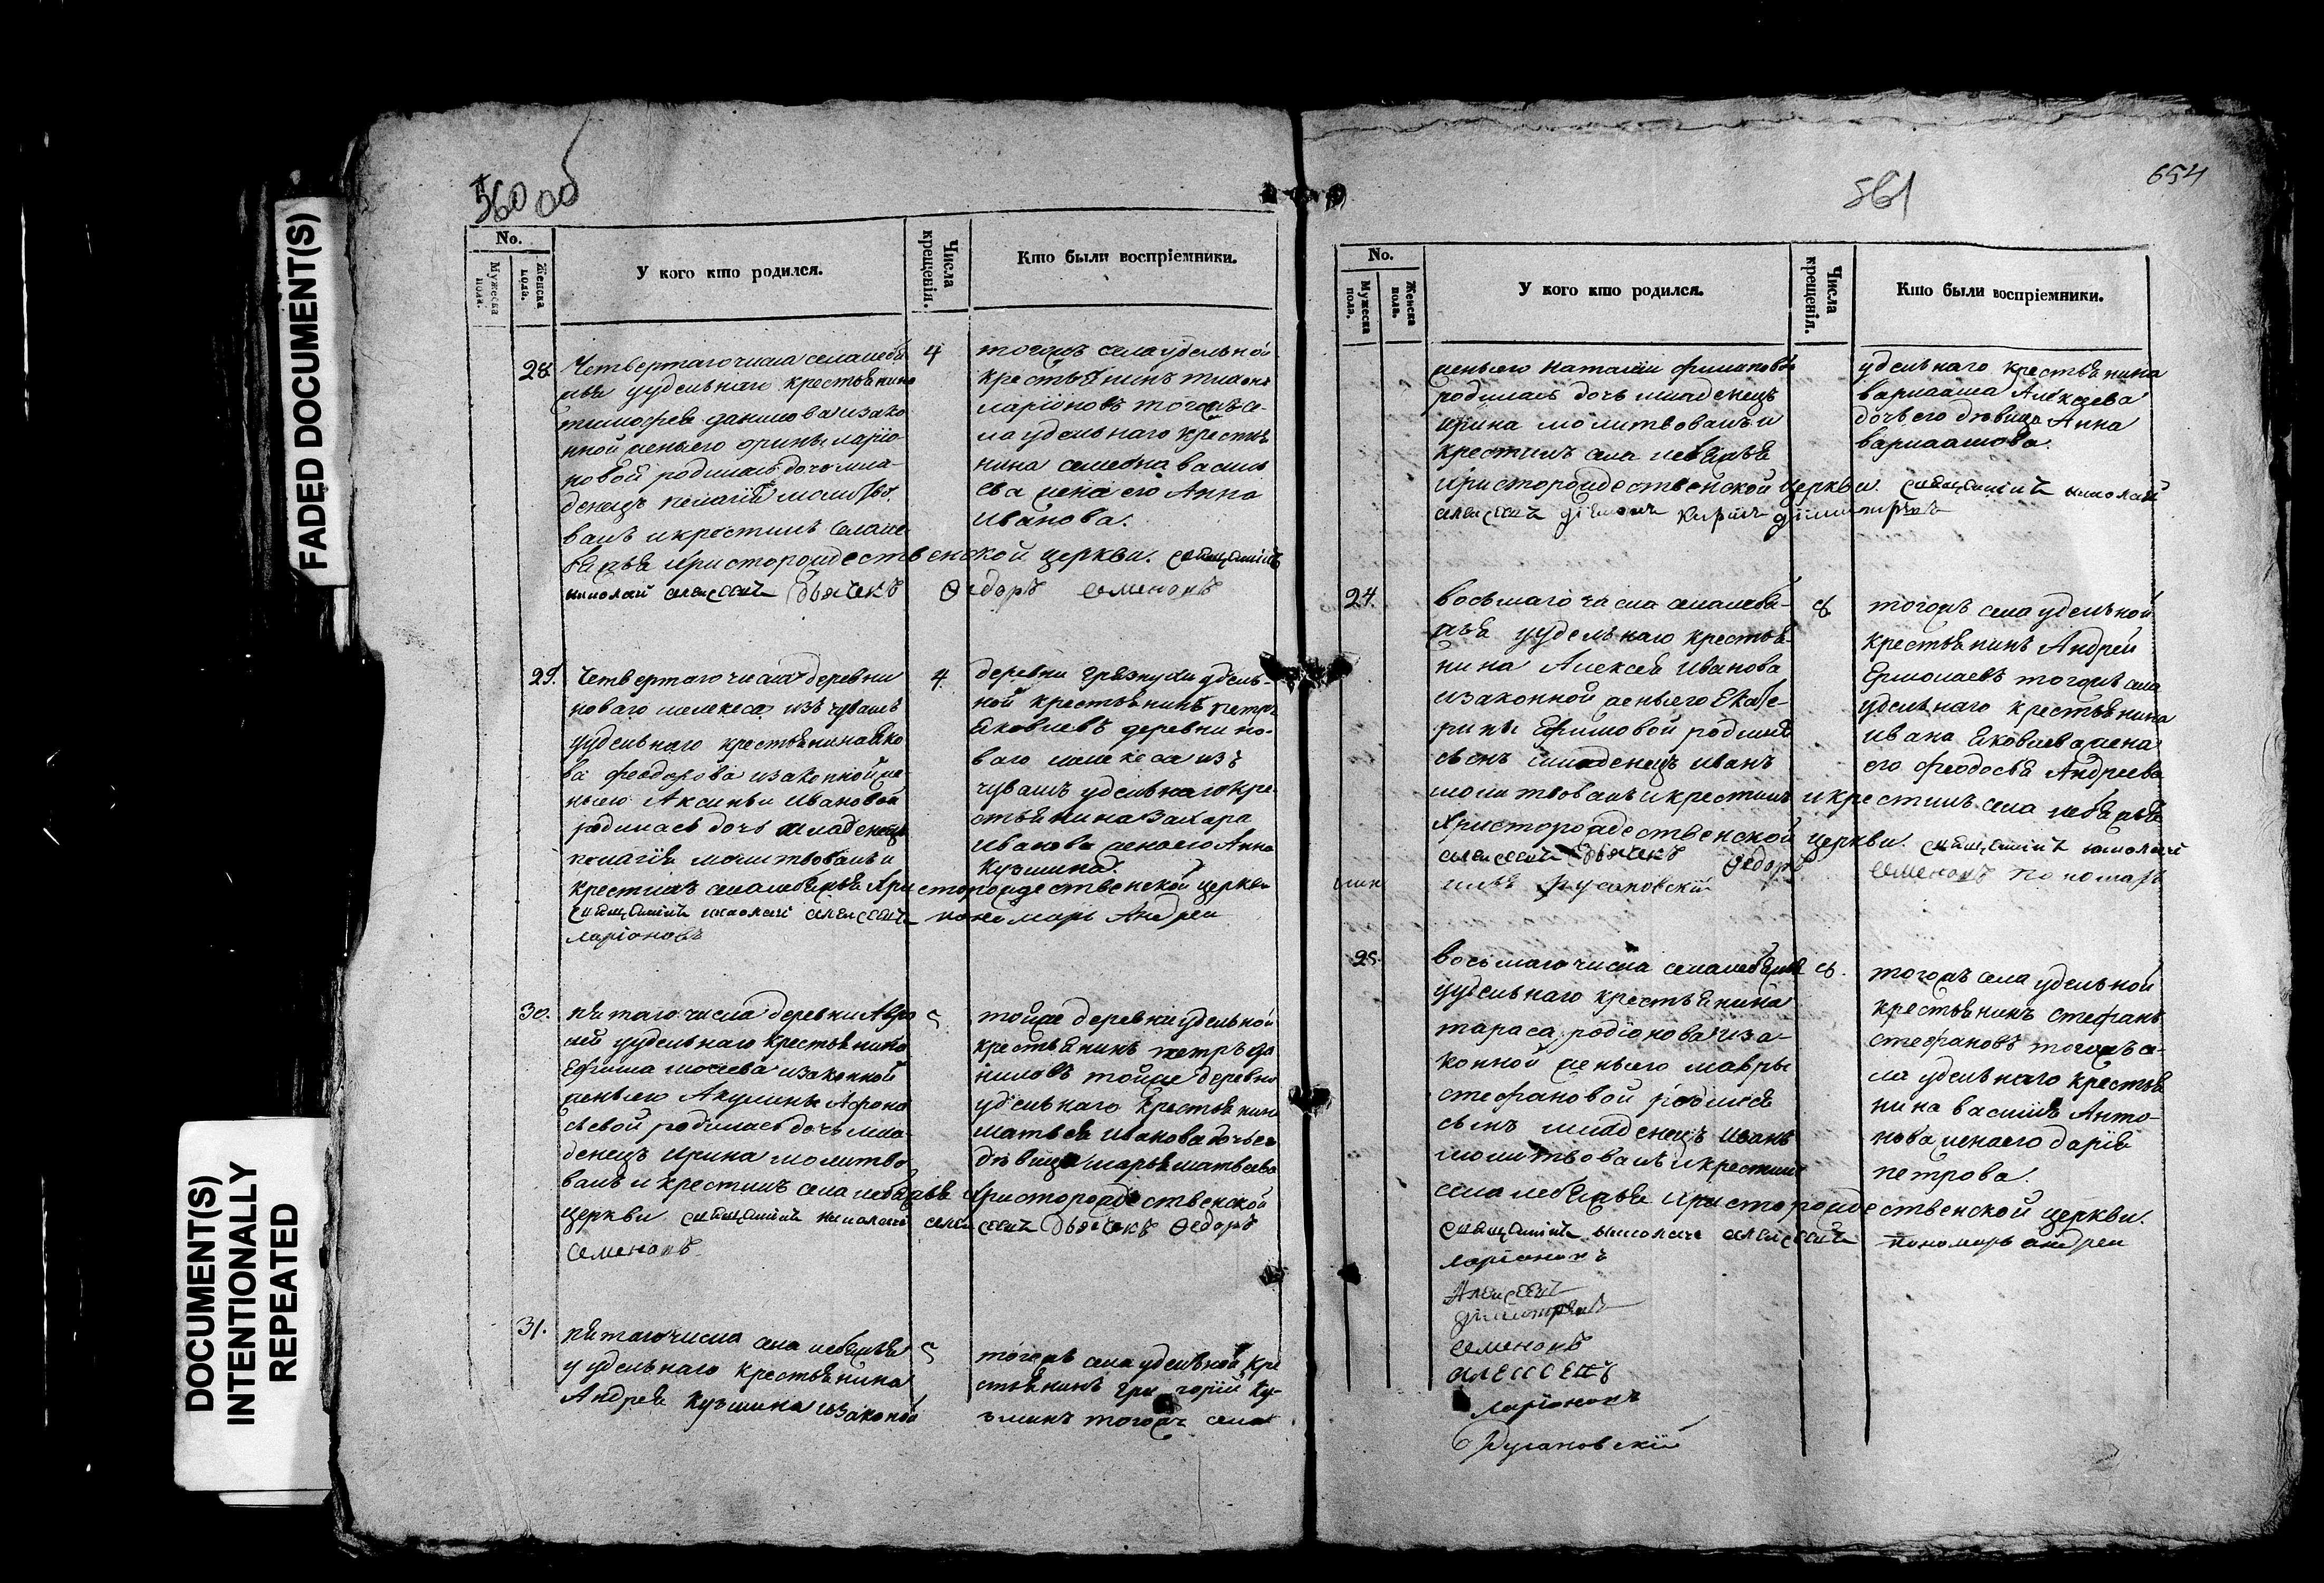 FADED DOCUMENT(S)
DOCUMENT(S)
INTENTIONALLY
REPEATED
560 об
No.
Мужеска пола.
Женска пола.
У кого кто родился.
Числа крещенія.
Кто были воспріемники.
28.
Четвертаго числа села лебя
жья у удельнаго крестьянина
тимофея данилова изако
нной жены его орины ларіо
новой родилась дочь мла-
денецъ пелагія молитво
валъ и крестилъ села ле
бяжья Христорождественской церкви. священникъ
николай алексеевъ дьячекъ Ѳедоръ семеновъ
4
тогожъ села удельной
крестьянинъ тихонъ
ларіоновъ тогожъ се-
ла удельнаго крестья
нина семена василь
ева жена его Анна
Иванова.
29.
Четвертаго числа деревни
новаго мелекеса изъ чувашъ
у удельнаго крестьянина Яко
ва феодорова изаконной же
ны его Аксиньи Ивановой
родилась дочь младенецъ
пелагія молитвовалъ и
крестилъ села лебяжья Христорождественской церкви
священникъ николай алексеевъ пономарь Андрей
ларіоновъ
4
деревни грязнухи удель-
ной крестьянинъ петръ
Яковлевъ деревни но-
ваго мелекеса изъ
чувашъ удельнаго кре
стьянина Захара
Иванова жена его Анна
Кузмина.
30.
пятаго числа деревни
у удельнаго крестьянина
Ефима мосеева изаконной
жены его Акулины Афона
сьевой родилась дочь мла
денецъ Ирина молитво
валъ и крестилъ села лебяжья Христорождественской
церкви священникъ николай алексеевъ дьячекъ Ѳедоръ
семеновъ
5
тойже деревни удельной
крестьянинъ петръ да
ниловъ тойже деревни
удельнаго крестьянина
Матвея Иванова дочь его
девица марья матвеева
31.
пятаго числа села лебяжья
у удельнаго крестьянина
Андрея Кузмина изаконой
5
тогожъ села удельной кре
стьянинъ григорій Ку-
зминъ тогожъ села
561
654
No.
Мужеска пола.
Женска пола.
У кого кто родился.
Числа крещенія.
Кто были воспріемники.
жены его Наталіи филиповой
родилась дочь младенецъ
ирина молитвовалъ и
крестилъ села лебяжья
Христорождественской церкви. священникъ николай
алексеевъ діаконъ димитріевъ
удельнаго крестьянина
варлаама Алексеева
дочь его девица Анна
варлаамова.
24.
восьмаго числа села лебя-
жья у удельнаго крестья
нина Алексея Иванова
изаконной жены его Екате-
рины Ефимовой родился
сынъ младенецъ иванъ
молитвовалъ и крестилъ и крестилъ села лебяжья
Христорождественской церкви. священникъ николай
алексеевъ дьячекъ Ѳедоръ семеновъ пономарь
8
тогожъ села удельной
крестьянинъ Андрей
Ермолаевъ тогожъ села
удельнаго крестьянина
ивана Яковлева жена
его феодосья Андреева
25.
восьмаго числа села лебяжья
у удельнаго крестьянина
тараса родіонова иза-
конной жены его мавры
стефановой родился
сынъ младенецъ иванъ
молитвовалъ и крестилъ
села лебяжья Христорождественской церкви.
священникъ николай алексеевъ пономарь андрей
ларіоновъ
8.
тогожъ села удельной
крестьянинъ стефанъ
стефановъ тогожъ се-
ла удельнаго крестья
нина василія Анто-
нова жена его дарія
петрова.
Алексеевъ
димитріевъ
семеновъ
алексеевъ
ларіоновъ